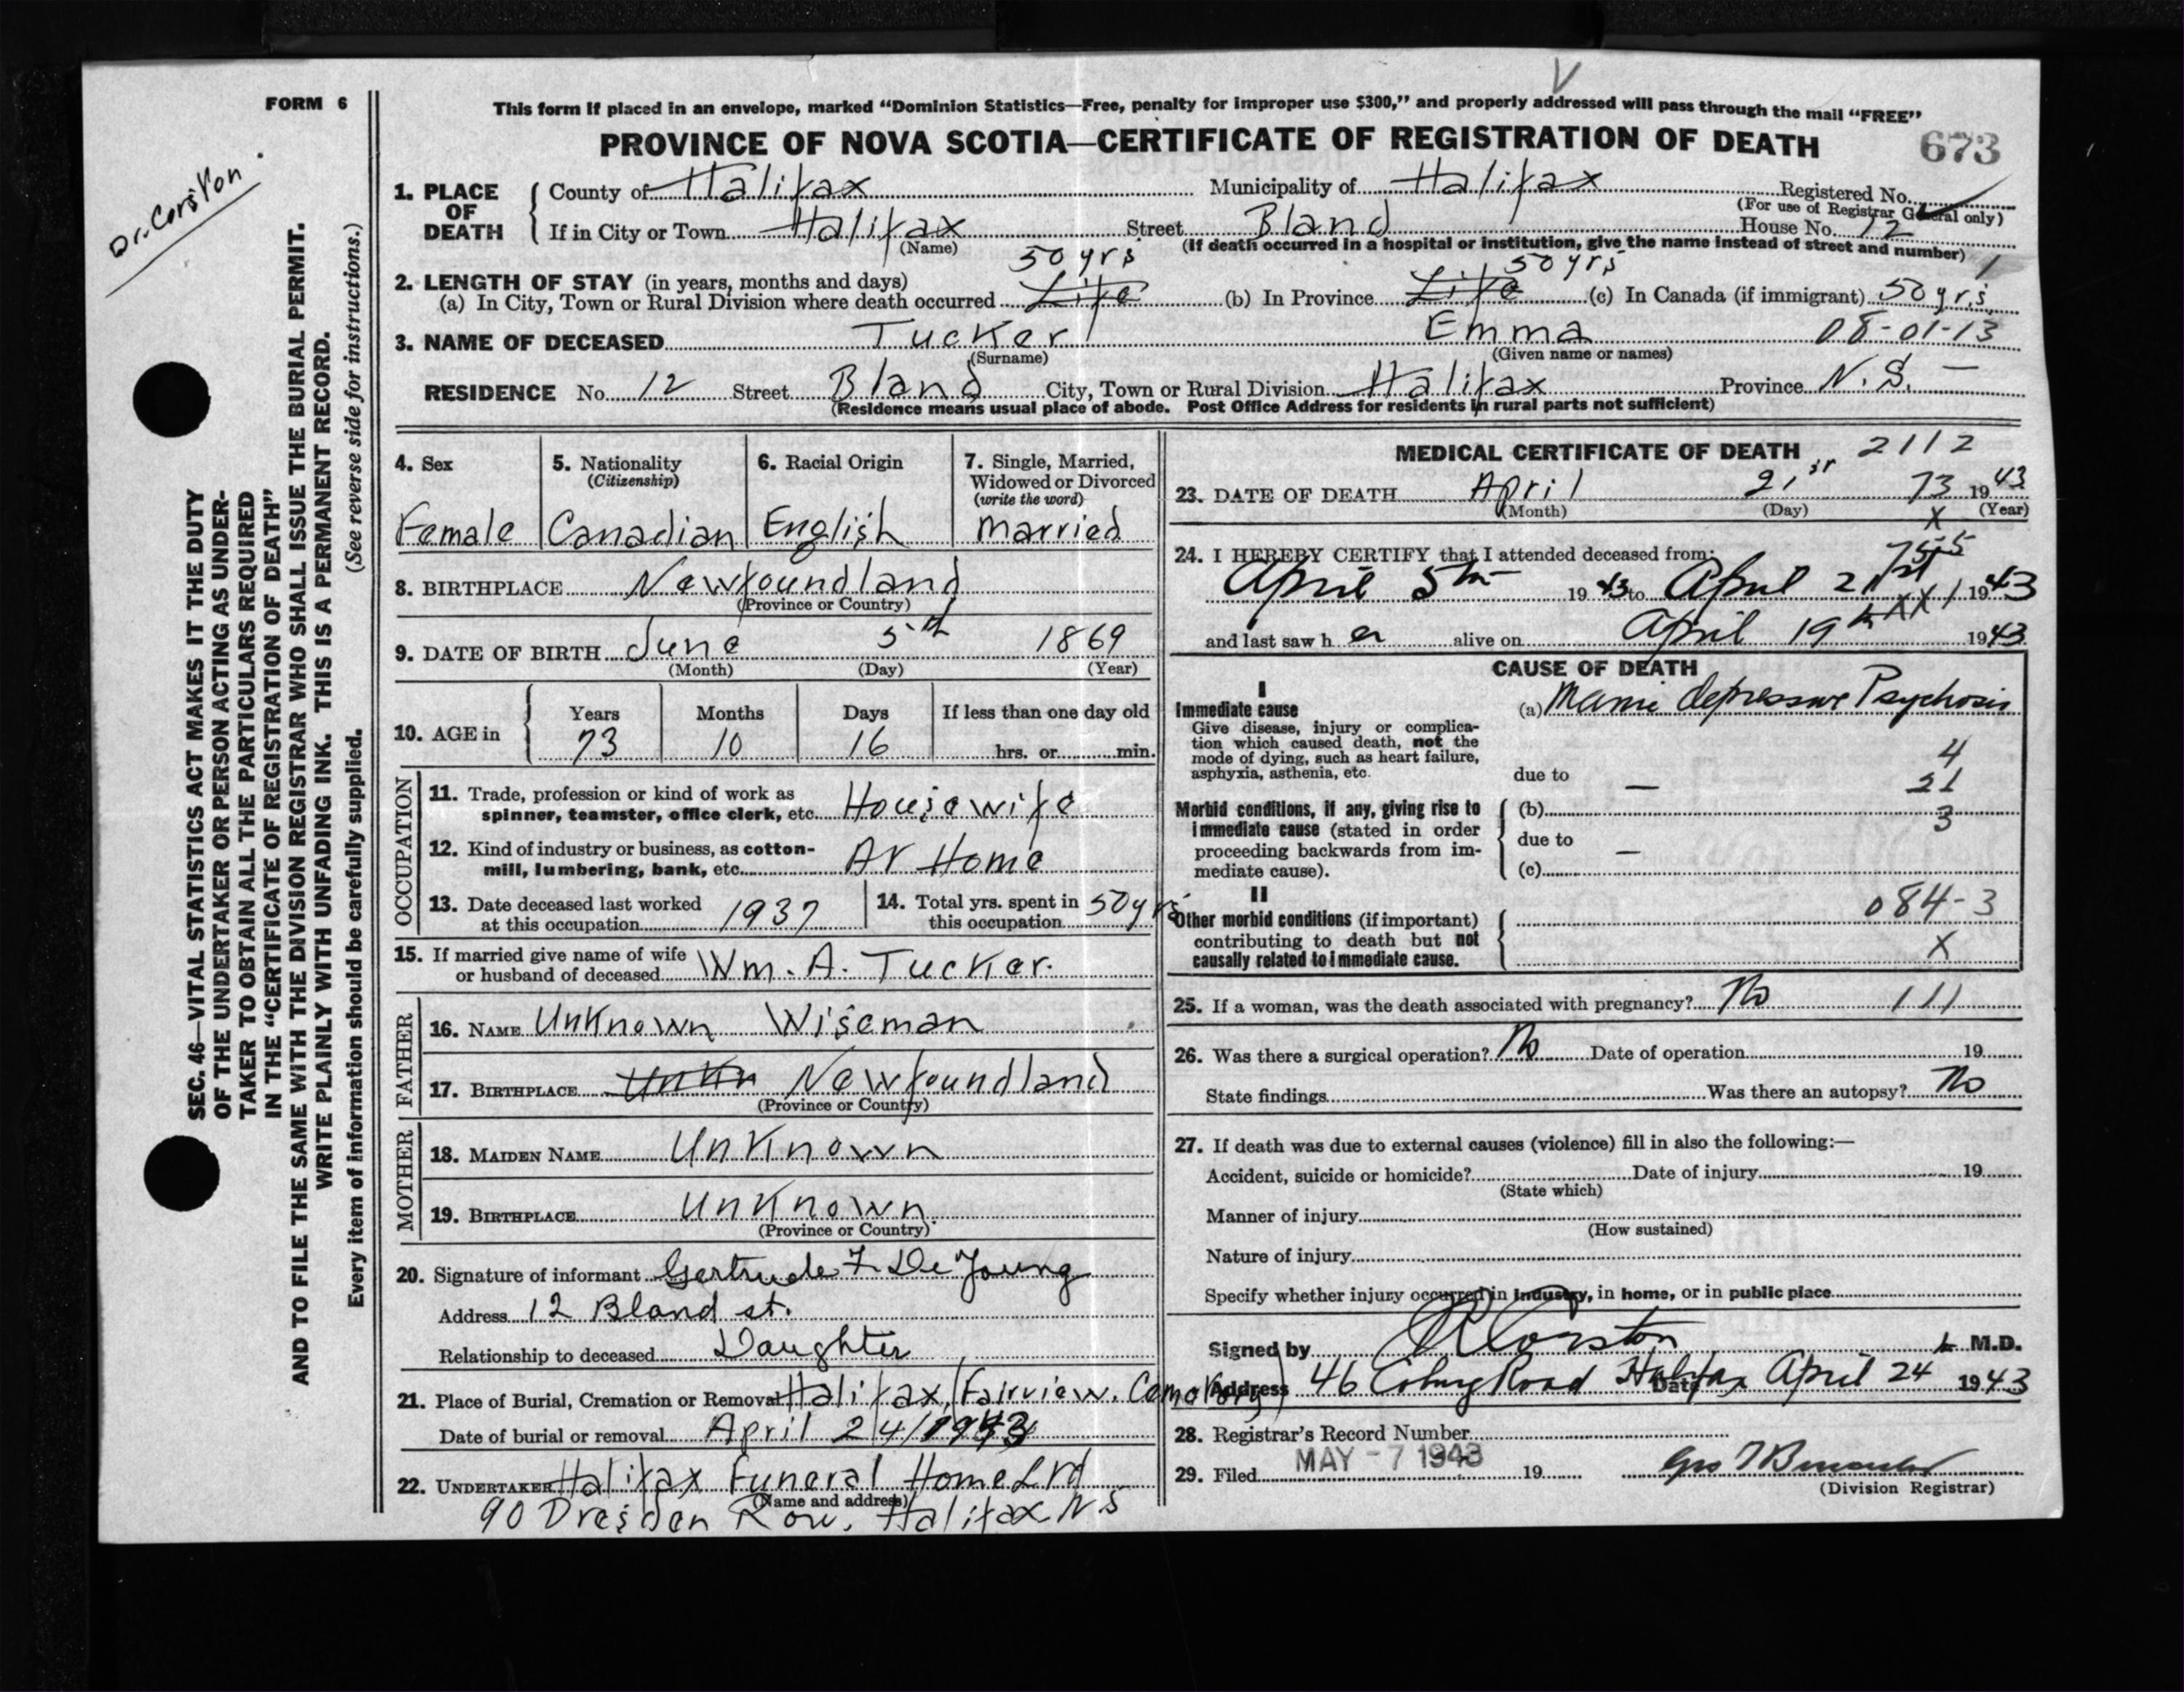 Dr. Corston.
FORM 6
SEC. 46—VITAL STATISTICS ACT MAKES IT THE DUTY
OF THE UNDERTAKER OR PERSON ACTING AS UNDER-
TAKER TO OBTAIN ALL THE PARTICULARS REQUIRED
IN THE "CERTIFICATE OF REGISTRATION OF DEATH"
AND TO FILE THE SAME WITH THE DIVISION REGISTRAR WHO SHALL ISSUE THE BURIAL PERMIT.
WRITE PLAINLY WITH UNFADING INK. THIS IS A PERMANENT RECORD.
Every item of information should be carefully supplied. (See reverse side for instructions.)
This form if placed in an envelope, marked "Dominion Statistics—Free, penalty for improper use $300," and properly addressed will pass through the mail "FREE"
PROVINCE OF NOVA SCOTIA—CERTIFICATE OF REGISTRATION OF DEATH 673
1. PLACE OF DEATH County of Halifax Municipality of Halifax Registered No.
(For use of Registrar General only)
If in City or Town Halifax Street Bland House No. 12
(Name) (If death occurred in a hospital or institution, give the name instead of street and number)
50 yrs 50 yrs 1
2. LENGTH OF STAY (in years, months and days)
(a) In City, Town or Rural Division where death occurred Life (b) In Province Life (c) In Canada (if immigrant) 50 yrs,
3. NAME OF DECEASED Tucker Emma 08-01-13
(Surname) (Given name or names)
RESIDENCE No. 12 Street Bland City, Town or Rural Division Halifax Province N. S. —
(Residence means usual place of abode. Post Office Address for residents in rural parts not sufficient)
4. Sex
Female
5. Nationality
(Citizenship)
Canadian
6. Racial Origin
English
7. Single, Married,
Widowed or Divorced
(write the word)
Married
8. BIRTHPLACE Newfoundland
(Province or Country)
9. DATE OF BIRTH June 5th 1869
(Month) (Day) (Year)
10. AGE in Years Months Days If less than one day old
73 10 16 hrs. or min.
OCCUPATION
11. Trade, profession or kind of work as
spinner, teamster, office clerk, etc. Housewife
12. Kind of industry or business, as cotton-
mill, lumbering, bank, etc. At Home
13. Date deceased last worked
at this occupation 1937
14. Total yrs. spent in
this occupation 50 yrs
15. If married give name of wife
or husband of deceased Wm. A. Tucker.
FATHER
16. NAME Unknown Wiseman
17. BIRTHPLACE Unkn Newfoundland
(Province or Country)
MOTHER
18. MAIDEN NAME Unknown
19. BIRTHPLACE Unknown.
(Province or Country)
20. Signature of informant Gertrude F. De Young
Address 12 Bland st.
Relationship to deceased Daughter
21. Place of Burial, Cremation or Removal Halifax, (Fairview. Cemetery)
Date of burial or removal April 24/1943
22. UNDERTAKER Halifax Funeral Home Ltd
(Name and address)
90 Dresden Row, Halifax N S
MEDICAL CERTIFICATE OF DEATH 2112
23. DATE OF DEATH April 21st 73 1943
(Month) (Day) X (Year)
24. I HEREBY CERTIFY that I attended deceased from:
April 5th 1943 to April 21st 1943
and last saw her alive on April 19th 1943
CAUSE OF DEATH
I
Immediate cause
Give disease, injury or complica-
tion which caused death, not the
mode of dying, such as heart failure,
asphyxia, asthenia, etc.
(a) Manic depressive Psychosis
4
due to — 21
Morbid conditions, if any, giving rise to
immediate cause (stated in order
proceeding backwards from im-
mediate cause).
(b) 3
due to —
(c)
II
Other morbid conditions (if important)
contributing to death but not
causally related to immediate cause.
084-3
X
25. If a woman, was the death associated with pregnancy? No 111
26. Was there a surgical operation? No Date of operation 19
State findings Was there an autopsy? No
27. If death was due to external causes (violence) fill in also the following:—
Accident, suicide or homicide? Date of injury 19
(State which)
Manner of injury
(How sustained)
Nature of injury
Specify whether injury occurred in industry, in home, or in public place
Signed by Corston M.D.
Address 46 Coburg Road Halifax Date April 24 1943
28. Registrar's Record Number
29. Filed MAY - 7 1943 19
(Division Registrar)